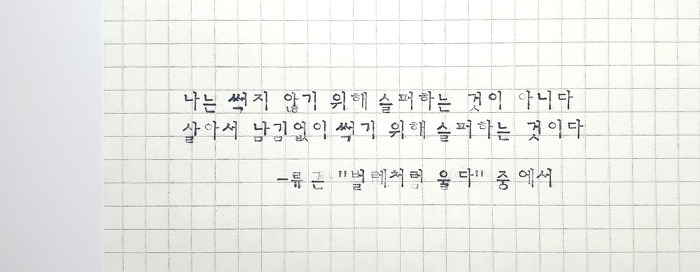 나는 썩지 않기 위해 슬퍼하는 것이 아니다
살아서 남김없이 썩기 위해 슬퍼하는 것이다
-류근 "벌레처럼 울다" 중에서